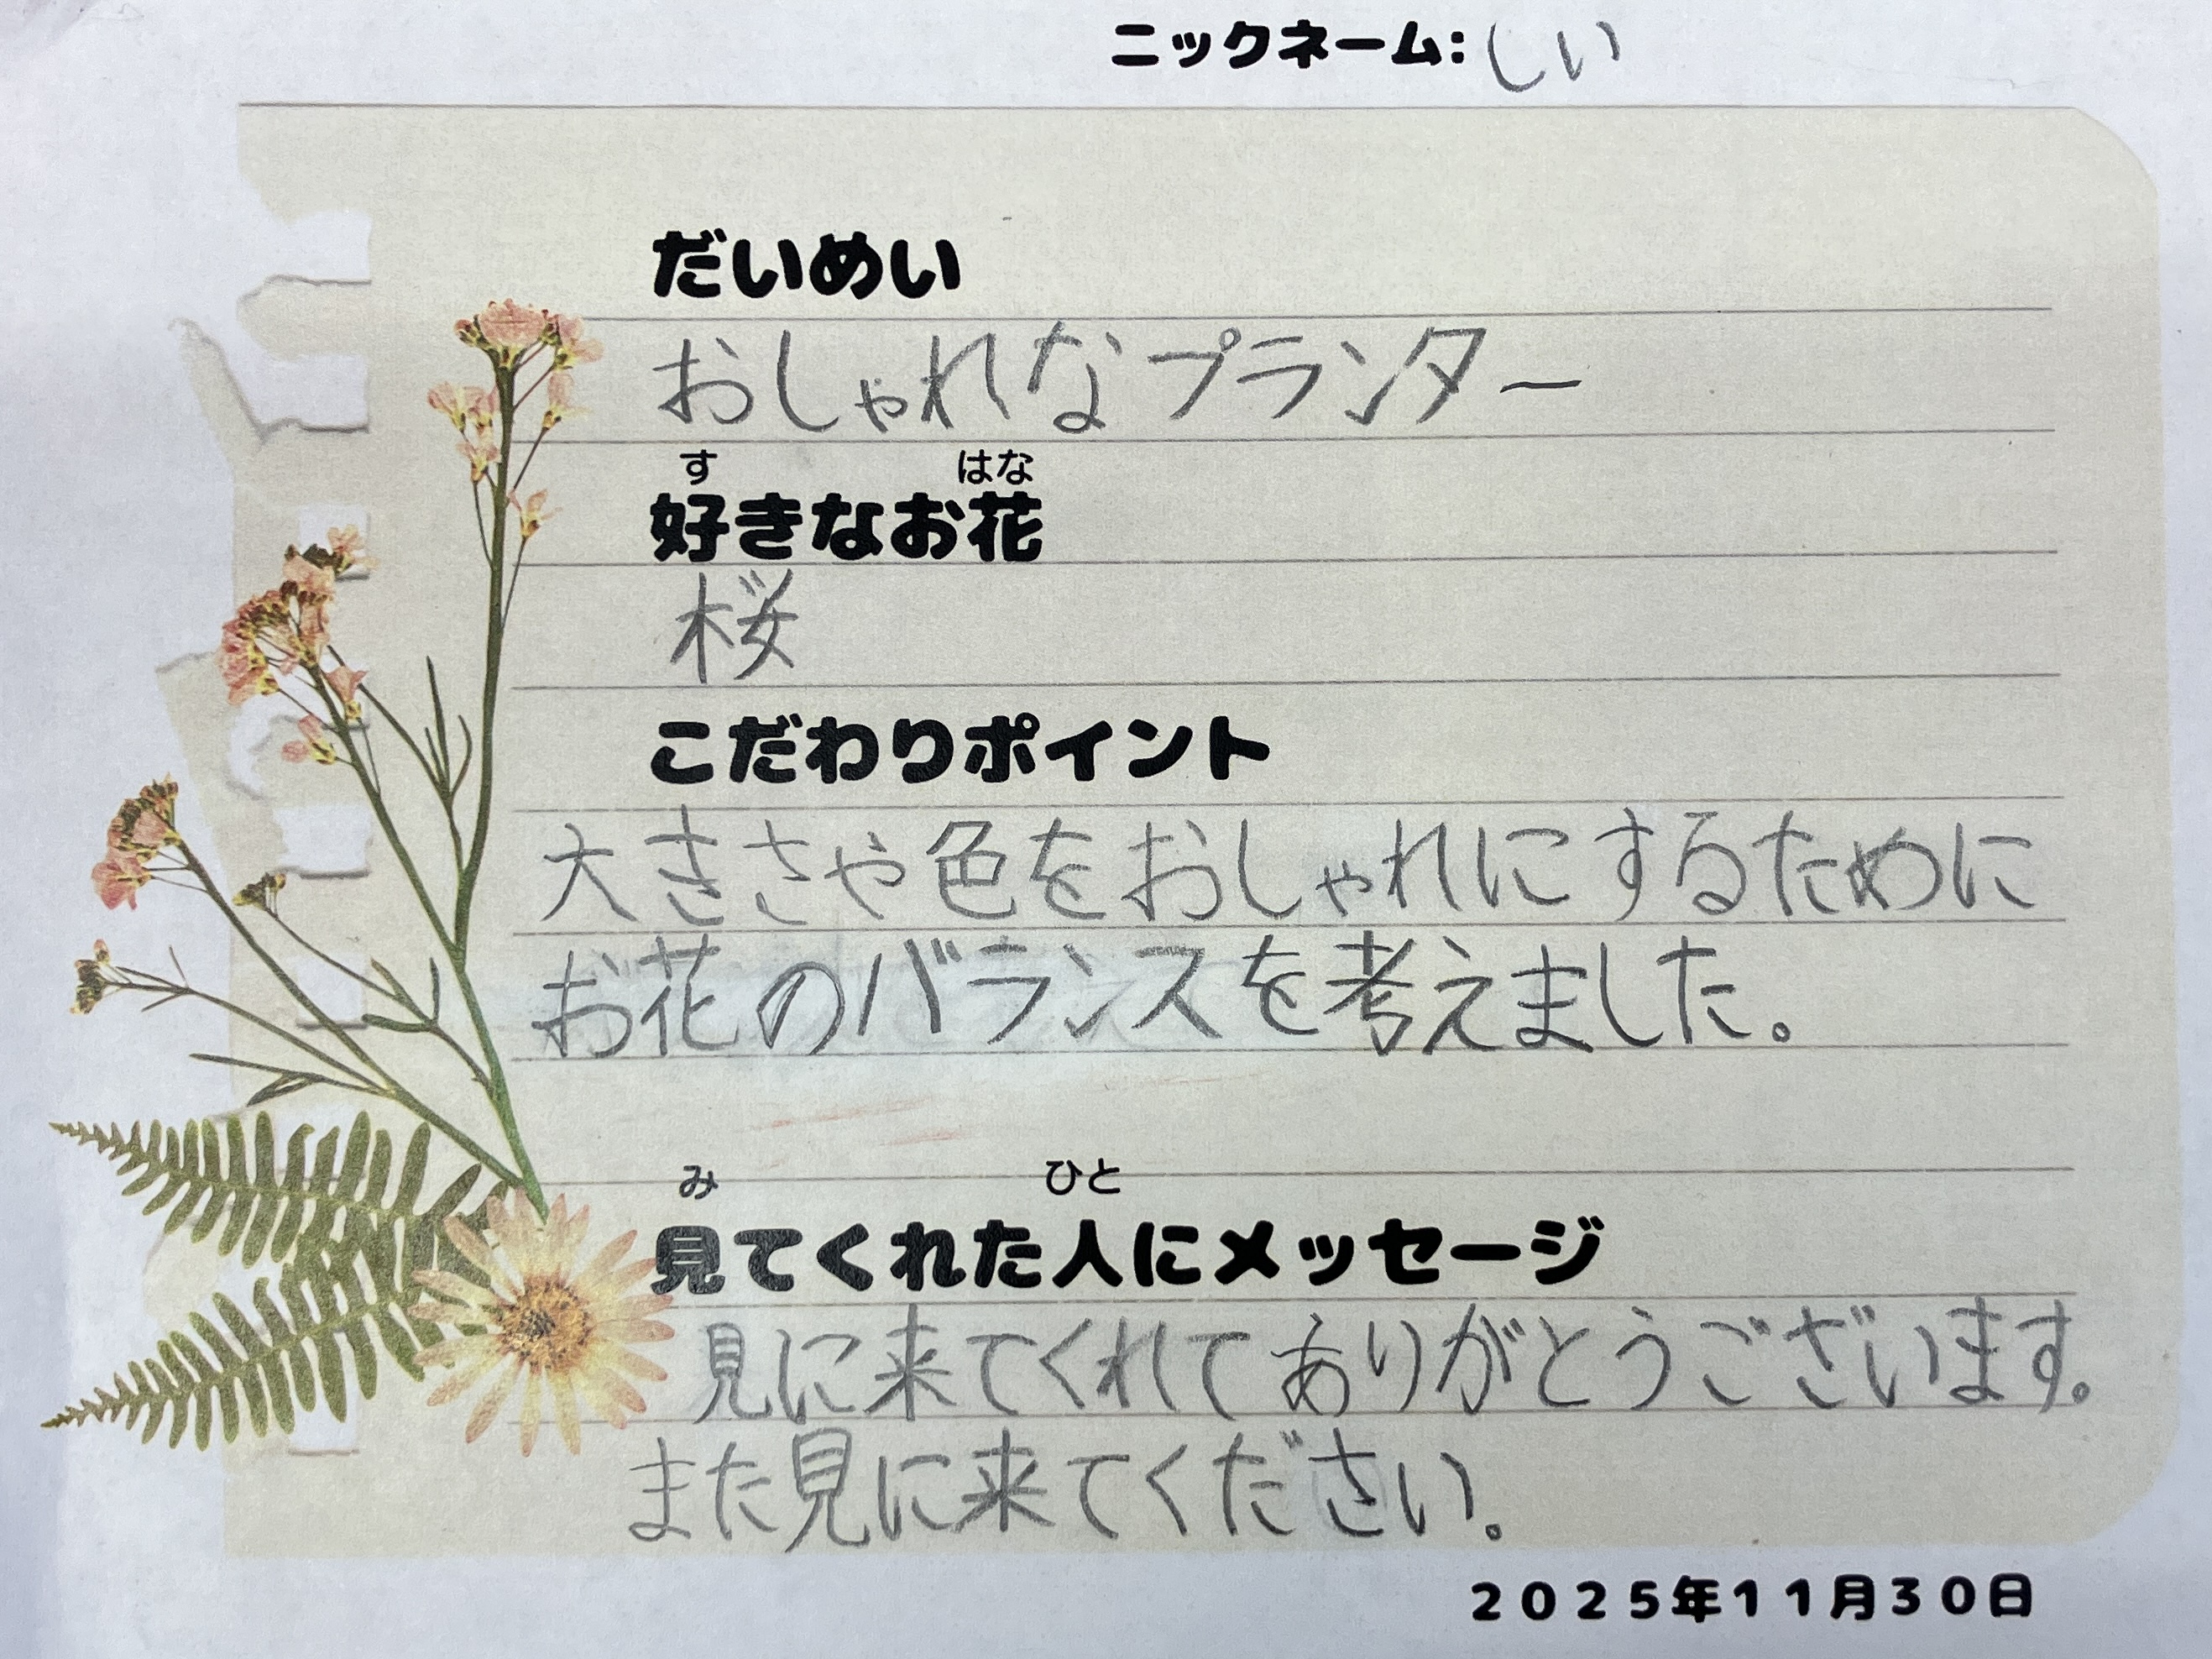 ニックネーム:しい
だいめい
おしゃれなプランター
す はな
好きなお花
桜
こだわりポイント
大きさや色をおしゃれにするために
お花のバランスを考えました。
み ひと
見てくれた人にメッセージ
見に来てくれてありがとうございます。
また見に来てください。
2025年11月30日